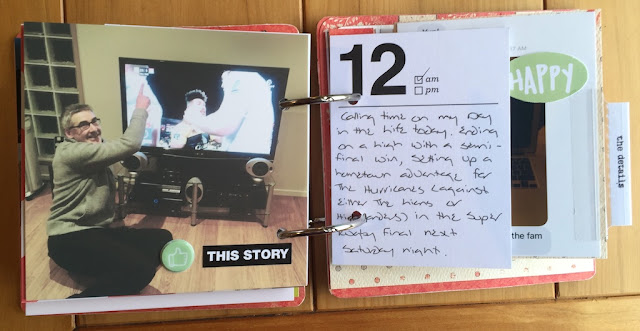 THIS STORY
12
am
pm
Calling time on my Day
in the Life today. Ending
on a high with a semi-
final win, setting up a
hometown advantage for
The Hurricanes (against
either The Lions or
Highlanders) in the Super
Rugby final next
Saturday night.
HAPPY
the details
the fam